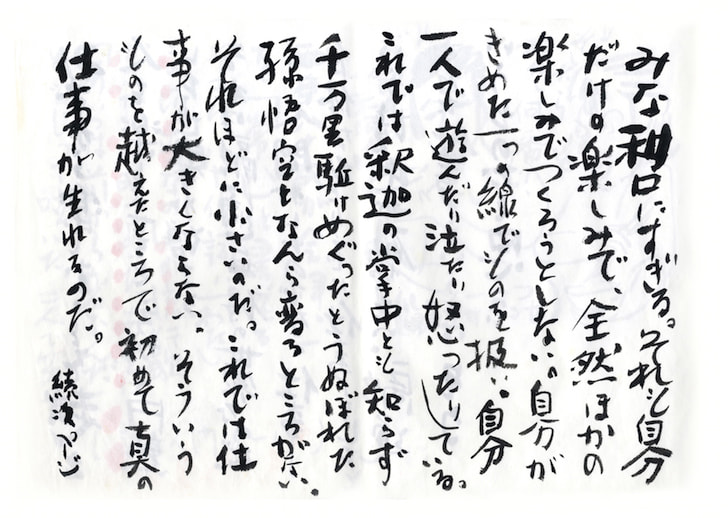 みな利口にすぎる。それも自分
だけの楽しみで、全然ほかの
楽しみでつくろうとしない。自分が
きめた一つの線でものを扱い、自分
一人で遊んだり泣たり怒ったりしている。
これでは釈迦の掌中とも知らず
千万里駈けめぐったとうぬぼれた
孫悟空となんら変るところがない。
それほどに小さいのだ。これでは仕
事が大きくならない。そういう
ものを越えたところで初めて真の
仕事が生れるのだ。
続次ページ